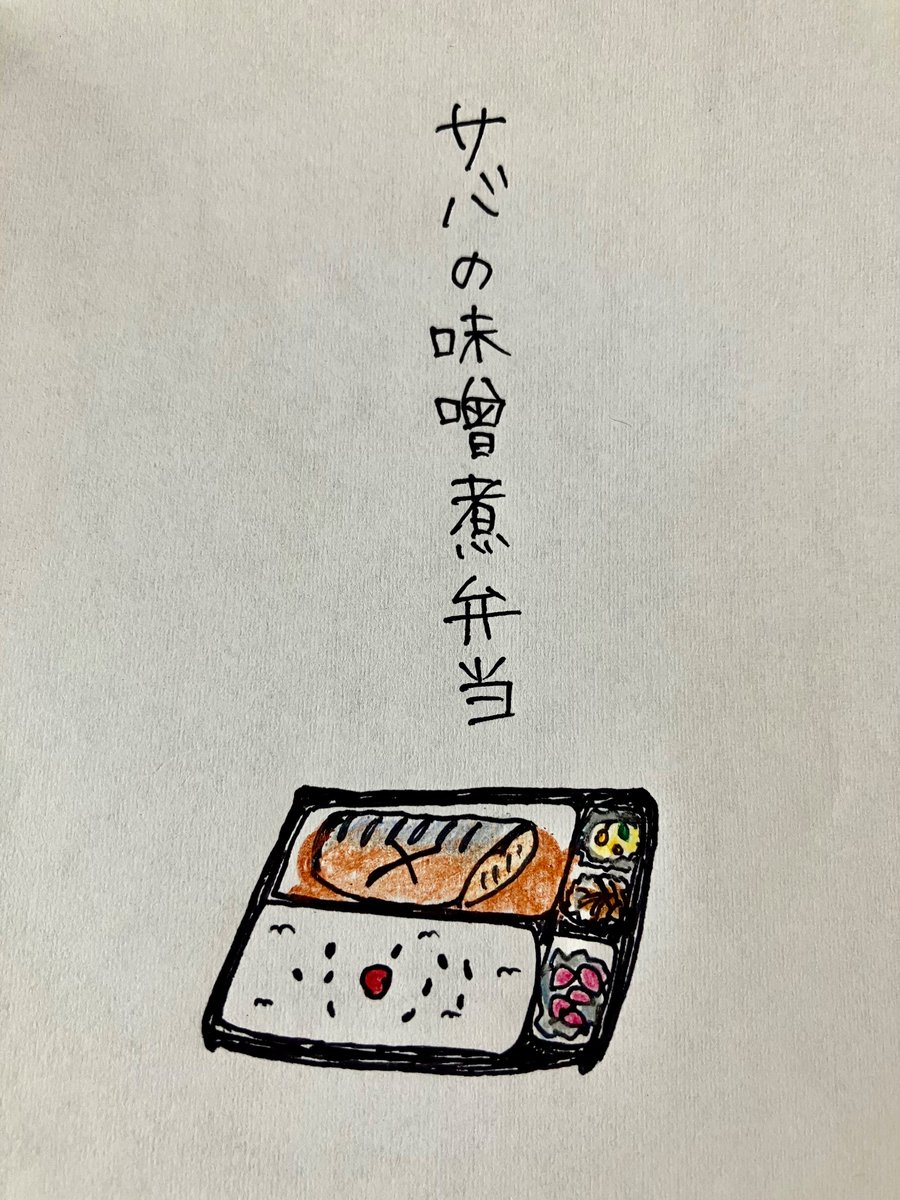 サバの味噌煮弁当